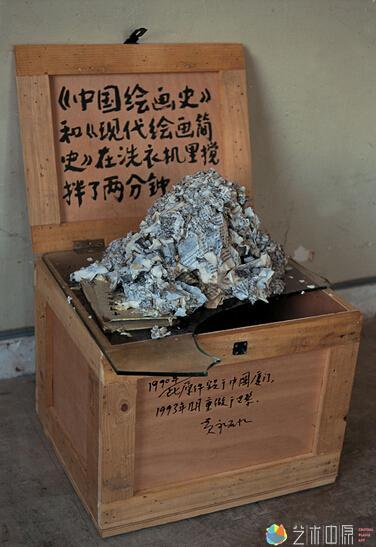 《中国绘画史》
和《现代绘画简
史》在洗衣机里搅
拌了两分钟
1990年
此原作毁于中国厦门,
1993年 重做于巴黎.
黄永砯
艺术中原
CENTRAL
PLAINS
ART